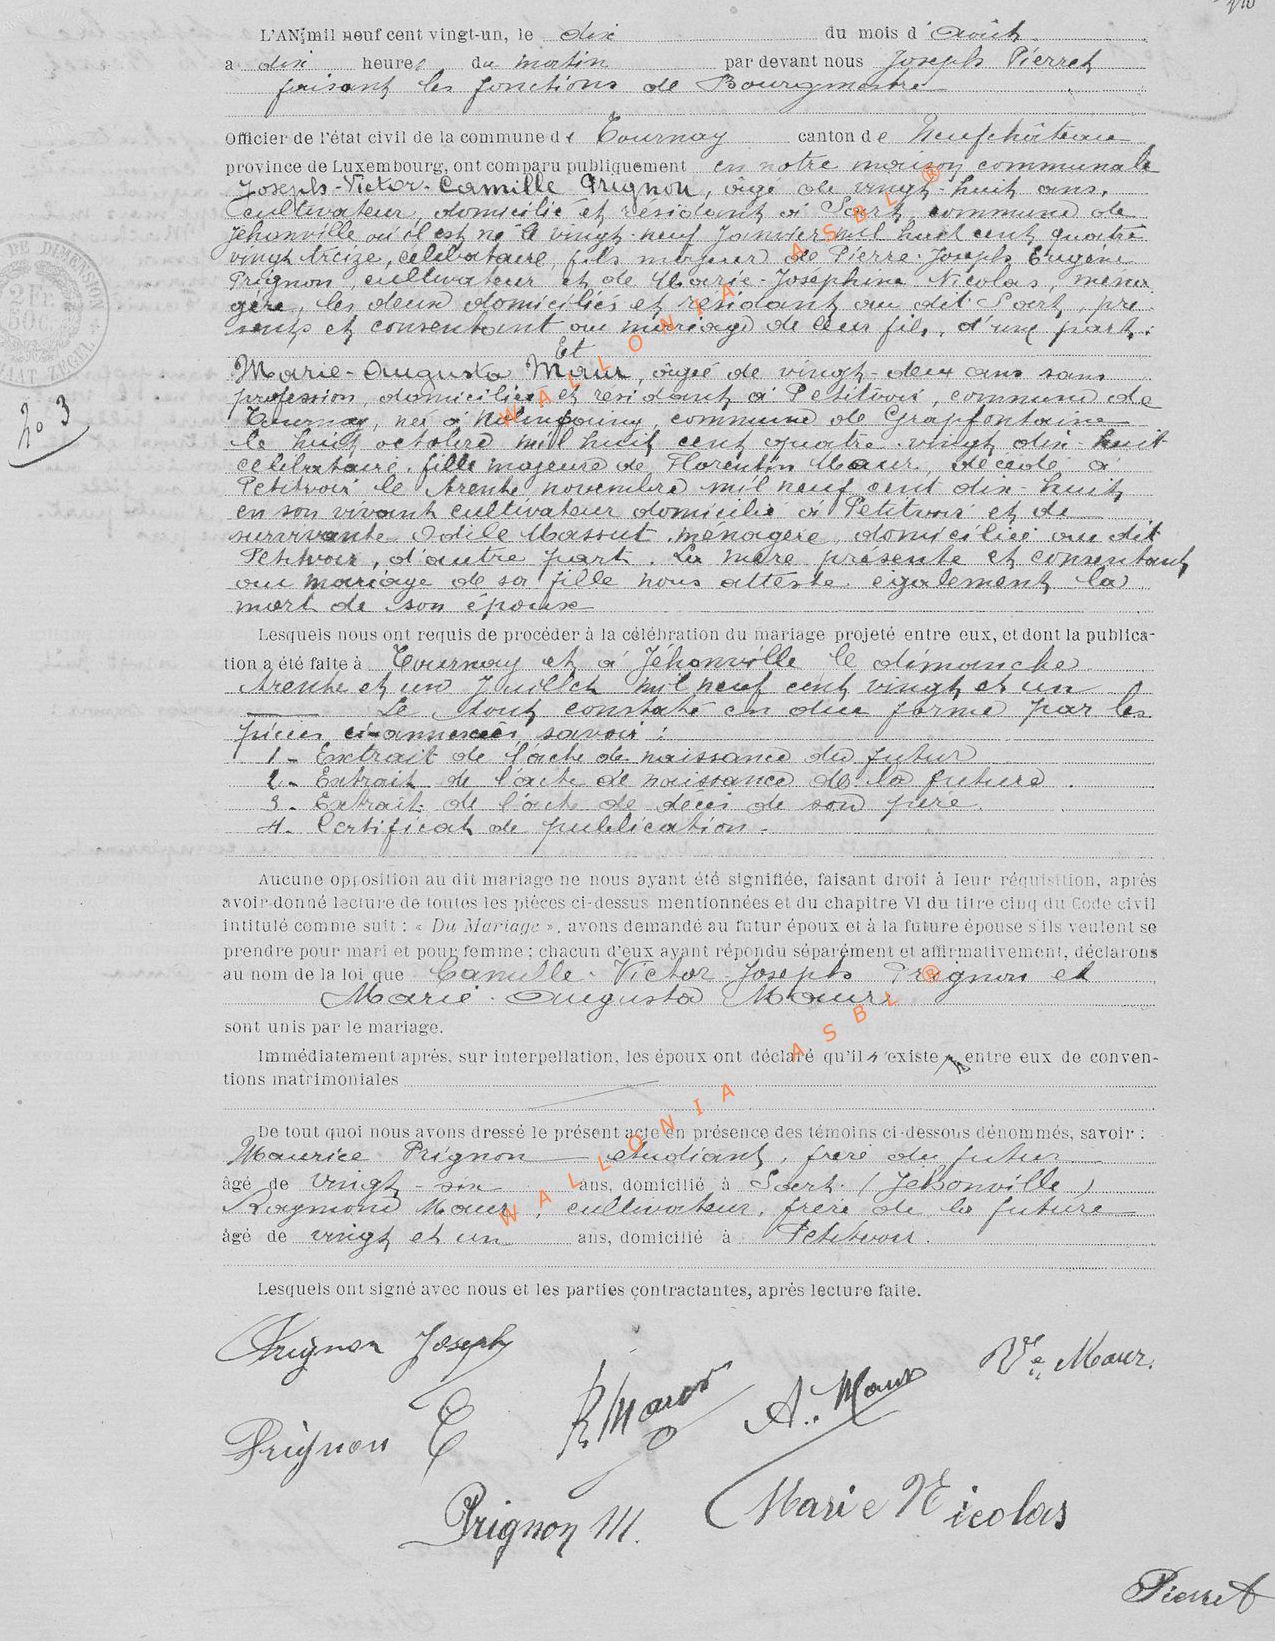 L'AN mil neuf cent vingt-un, le dix du mois d'Août
a dix heures du matin par devant nous Joseph Pierret
faisant les fonctions de Bourgmestre
Officier de l'état civil de la commune de Tournay canton de Neufchâteau
province de Luxembourg, ont comparu publiquement en notre maison communale
Joseph-Victor-Camille Prignon, âgé de vingt-huit ans,
cultivateur, domicilié et résidant à Sart, commune de
Jéhonville où il est né le vingt-neuf Janvier mil huit cent quatre
vingt treize, célibataire, fils majeur de Pierre-Joseph Eugène
Prignon, cultivateur et de Marie-Joséphine Nicolas, ména
gère, les deux domiciliés et résidant au dit Sart, pré
sents et consentant au mariage de leur fils, d'une part.
Et
Marie-Augusta Maur, âgée de vingt-deux ans sans
profession, domiciliée et résidant à Petitvoir, commune de
Tournay, née à commune de Grapfontaine
le huit octobre mil huit cent quatre-vingt dix-huit
célibataire, fille majeure de Florentin Maur, décédé à
Petitvoir le trente novembre mil neuf cent dix-huit
en son vivant cultivateur domicilié à Petitvoir et de
survivante Odile Massut, ménagère, domiciliée au dit
Petitvoir, d'autre part. La mère présente et consentant
au mariage de sa fille nous atteste également la
mort de son époux
Lesquels nous ont requis de procéder à la célébration du mariage projeté entre eux, et dont la publica-
tion a été faite à Tournay et à Jéhonville le dimanche
trente et un Juillet mil neuf cent vingt et un
Le tout constaté en due forme par les
pièces ci-annexées, savoir :
1- Extrait de l'acte de naissance du futur
2- Extrait de l'acte de naissance de la future.
3- Extrait de l'acte de décès de son père.
4- Certificat de publication.
Aucune opposition au dit mariage ne nous ayant été signifiée, faisant droit à leur réquisition, après
avoir donné lecture de toutes les pièces ci-dessus mentionnées et du chapitre VI du titre cinq du Code civil
intitulé comme suit : « Du Mariage », avons demandé au futur époux et à la future épouse s'ils veulent se
prendre pour mari et pour femme ; chacun d'eux ayant répondu séparément et affirmativement, déclarons
au nom de la loi que Camille-Victor-Joseph Prignon et
Marie-Augusta Maur
sont unis par le mariage.
Immédiatement après, sur interpellation, les époux ont déclaré qu'il n'existe entre eux de conven-
tions matrimoniales
De tout quoi nous avons dressé le présent acte en présence des témoins ci-dessous dénommés, savoir :
Maurice Prignon étudiant, frère du futur
âgé de vingt-six ans, domicilié à Sart (Jéhonville)
Raymond Maur, cultivateur, frère de la future
âgé de vingt et un ans, domicilié à Petitvoir.
Lesquels ont signé avec nous et les parties contractantes, après lecture faite.
Prignon Joseph
Ve Maur.
R Maur
A. Maur
Prignon E
Marie Nicolas
Prignon M.
Pierret
No 3
WALLONIA ASBL ®
WALLONIA ASBL ®